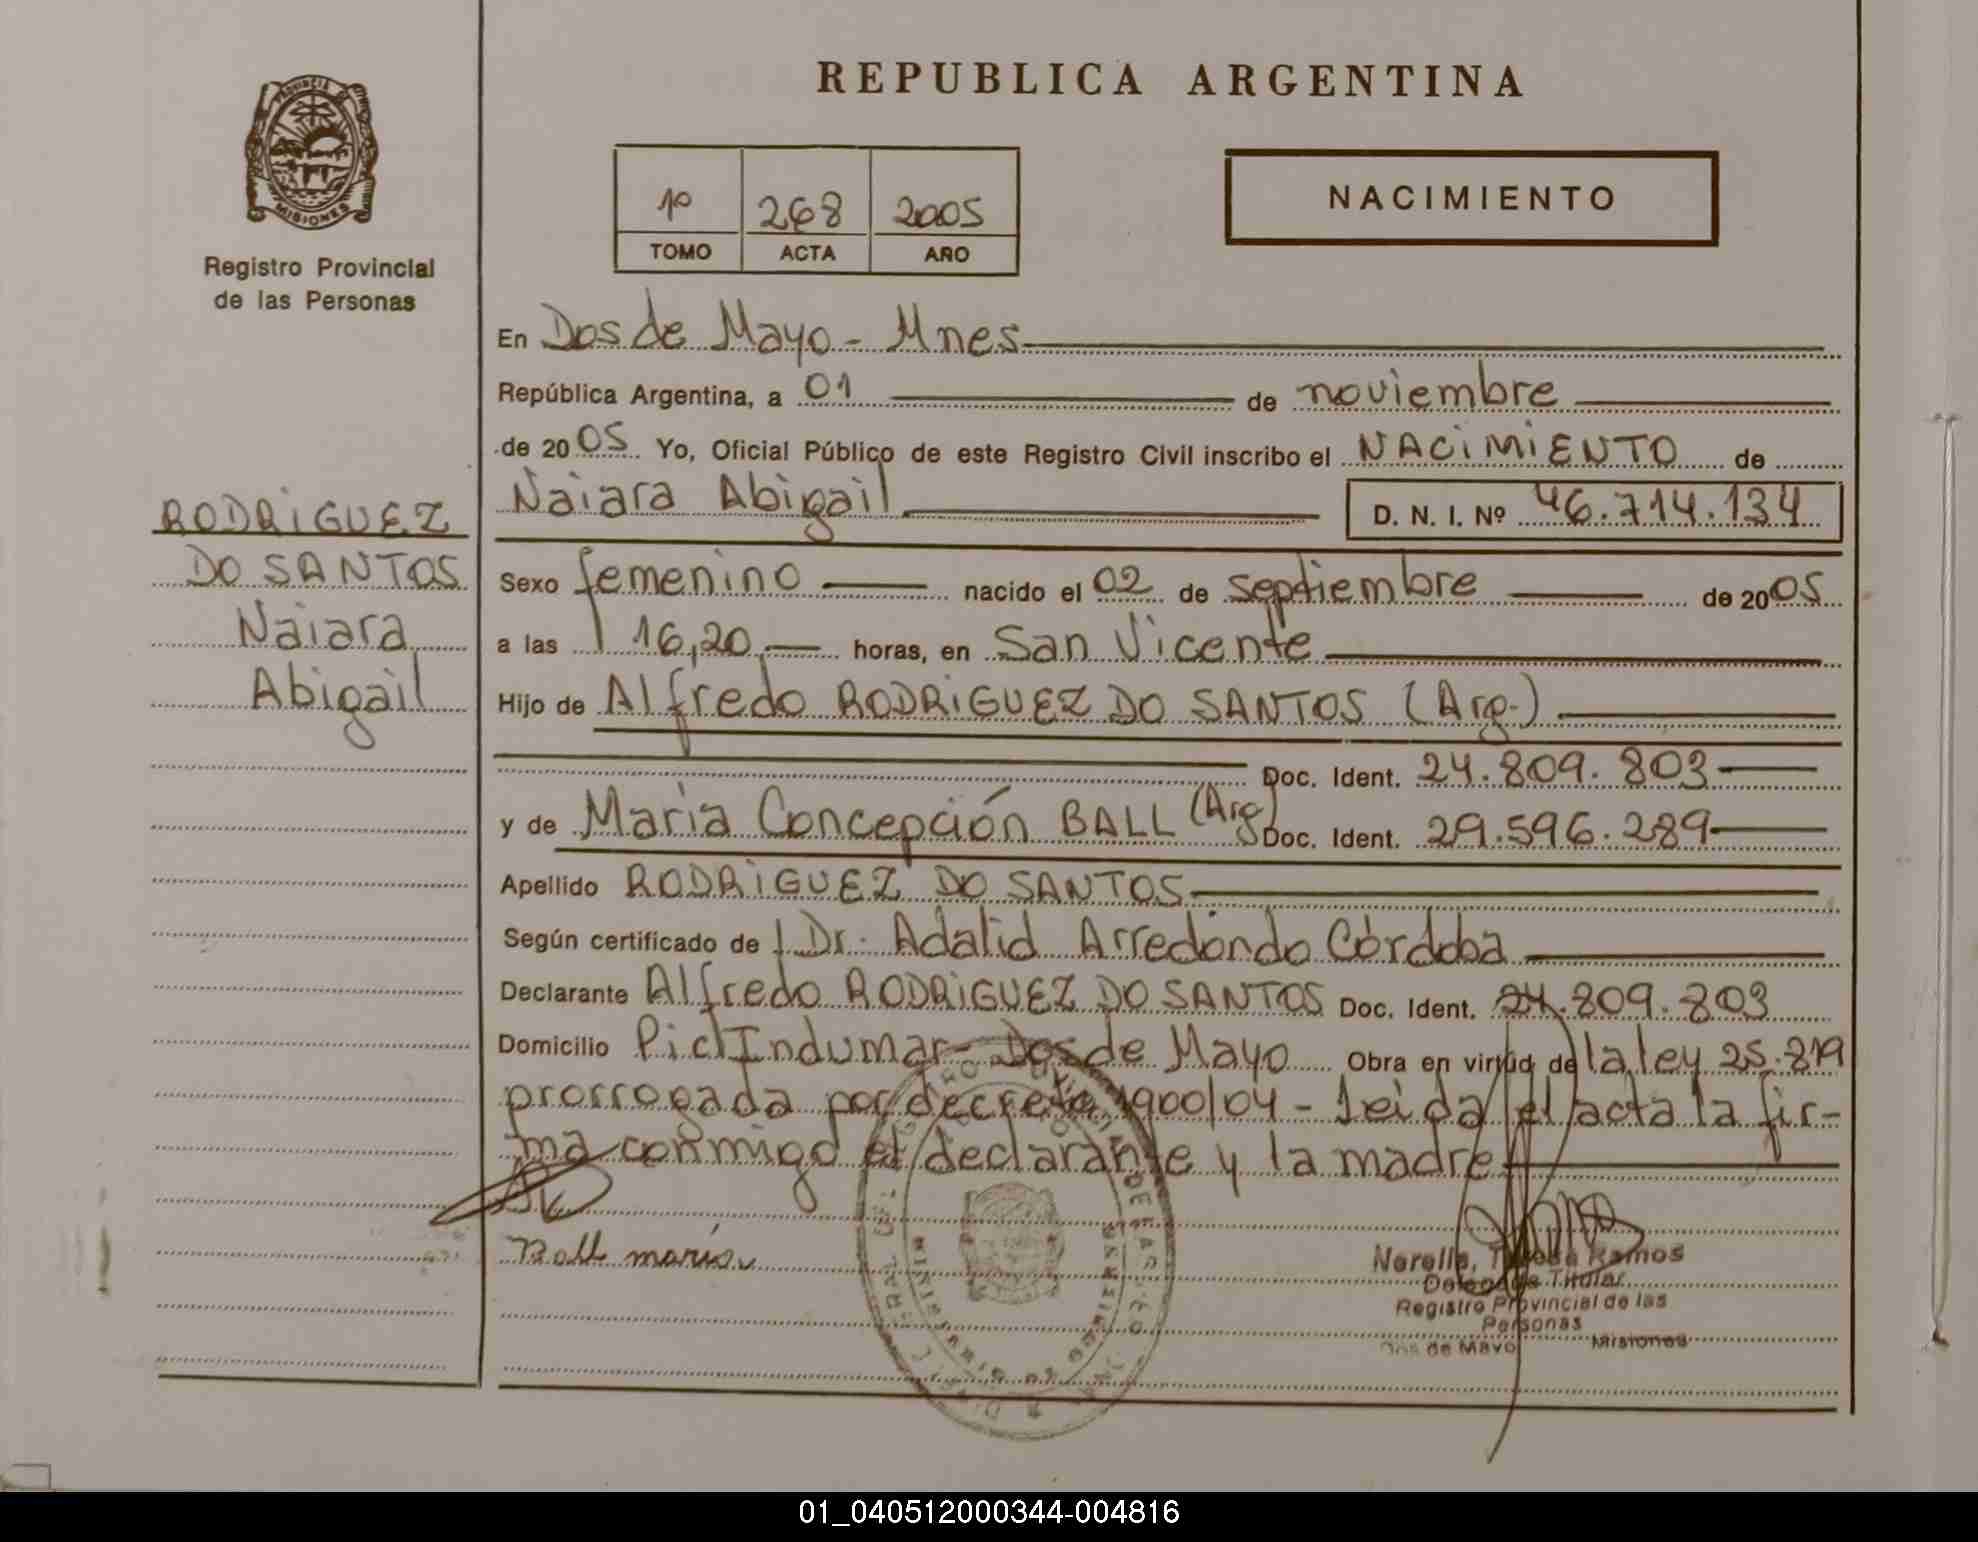 REPUBLICA ARGENTINA
PROVINCIA DE
MISIONES
Registro Provincial
de las Personas
1º 268 2005
TOMO ACTA AÑO
NACIMIENTO
RODRiGUEZ
DO SANTOS
Naiara
Abigail
En Dos de Mayo - Mnes
República Argentina, a 01 de noviembre
de 2005 Yo, Oficial Público de este Registro Civil inscribo el NACiMiENTO de
Naiara Abigail D. N. I. Nº 46.714.134
Sexo femenino nacido el 02 de septiembre de 2005
a las 16,20 horas, en San Vicente
Hijo de Alfredo RODRiGUEZ DO SANTOS (Arg.)
Doc. Ident. 24.809.803
y de María Concepción BALL (Arg) Doc. Ident. 29.596.289
Apellido RODRiGUEZ DO SANTOS
Según certificado de Dr. Adalid Arredondo Córdoba
Declarante Alfredo RODRiGUEZ DO SANTOS Doc. Ident. 24.809.803
Domicilio Indumar - Dos de Mayo Obra en virtud de la ley 25.819
prorrogada por decreto 1900/04 - Leida el acta la fir-
ma conmigo el declarante y la madre
Ball maria
Teresa Ramos
Delegada Titular
Registro Provincial de las
Personas
Dos de Mayo Misiones
01_040512000344-004816